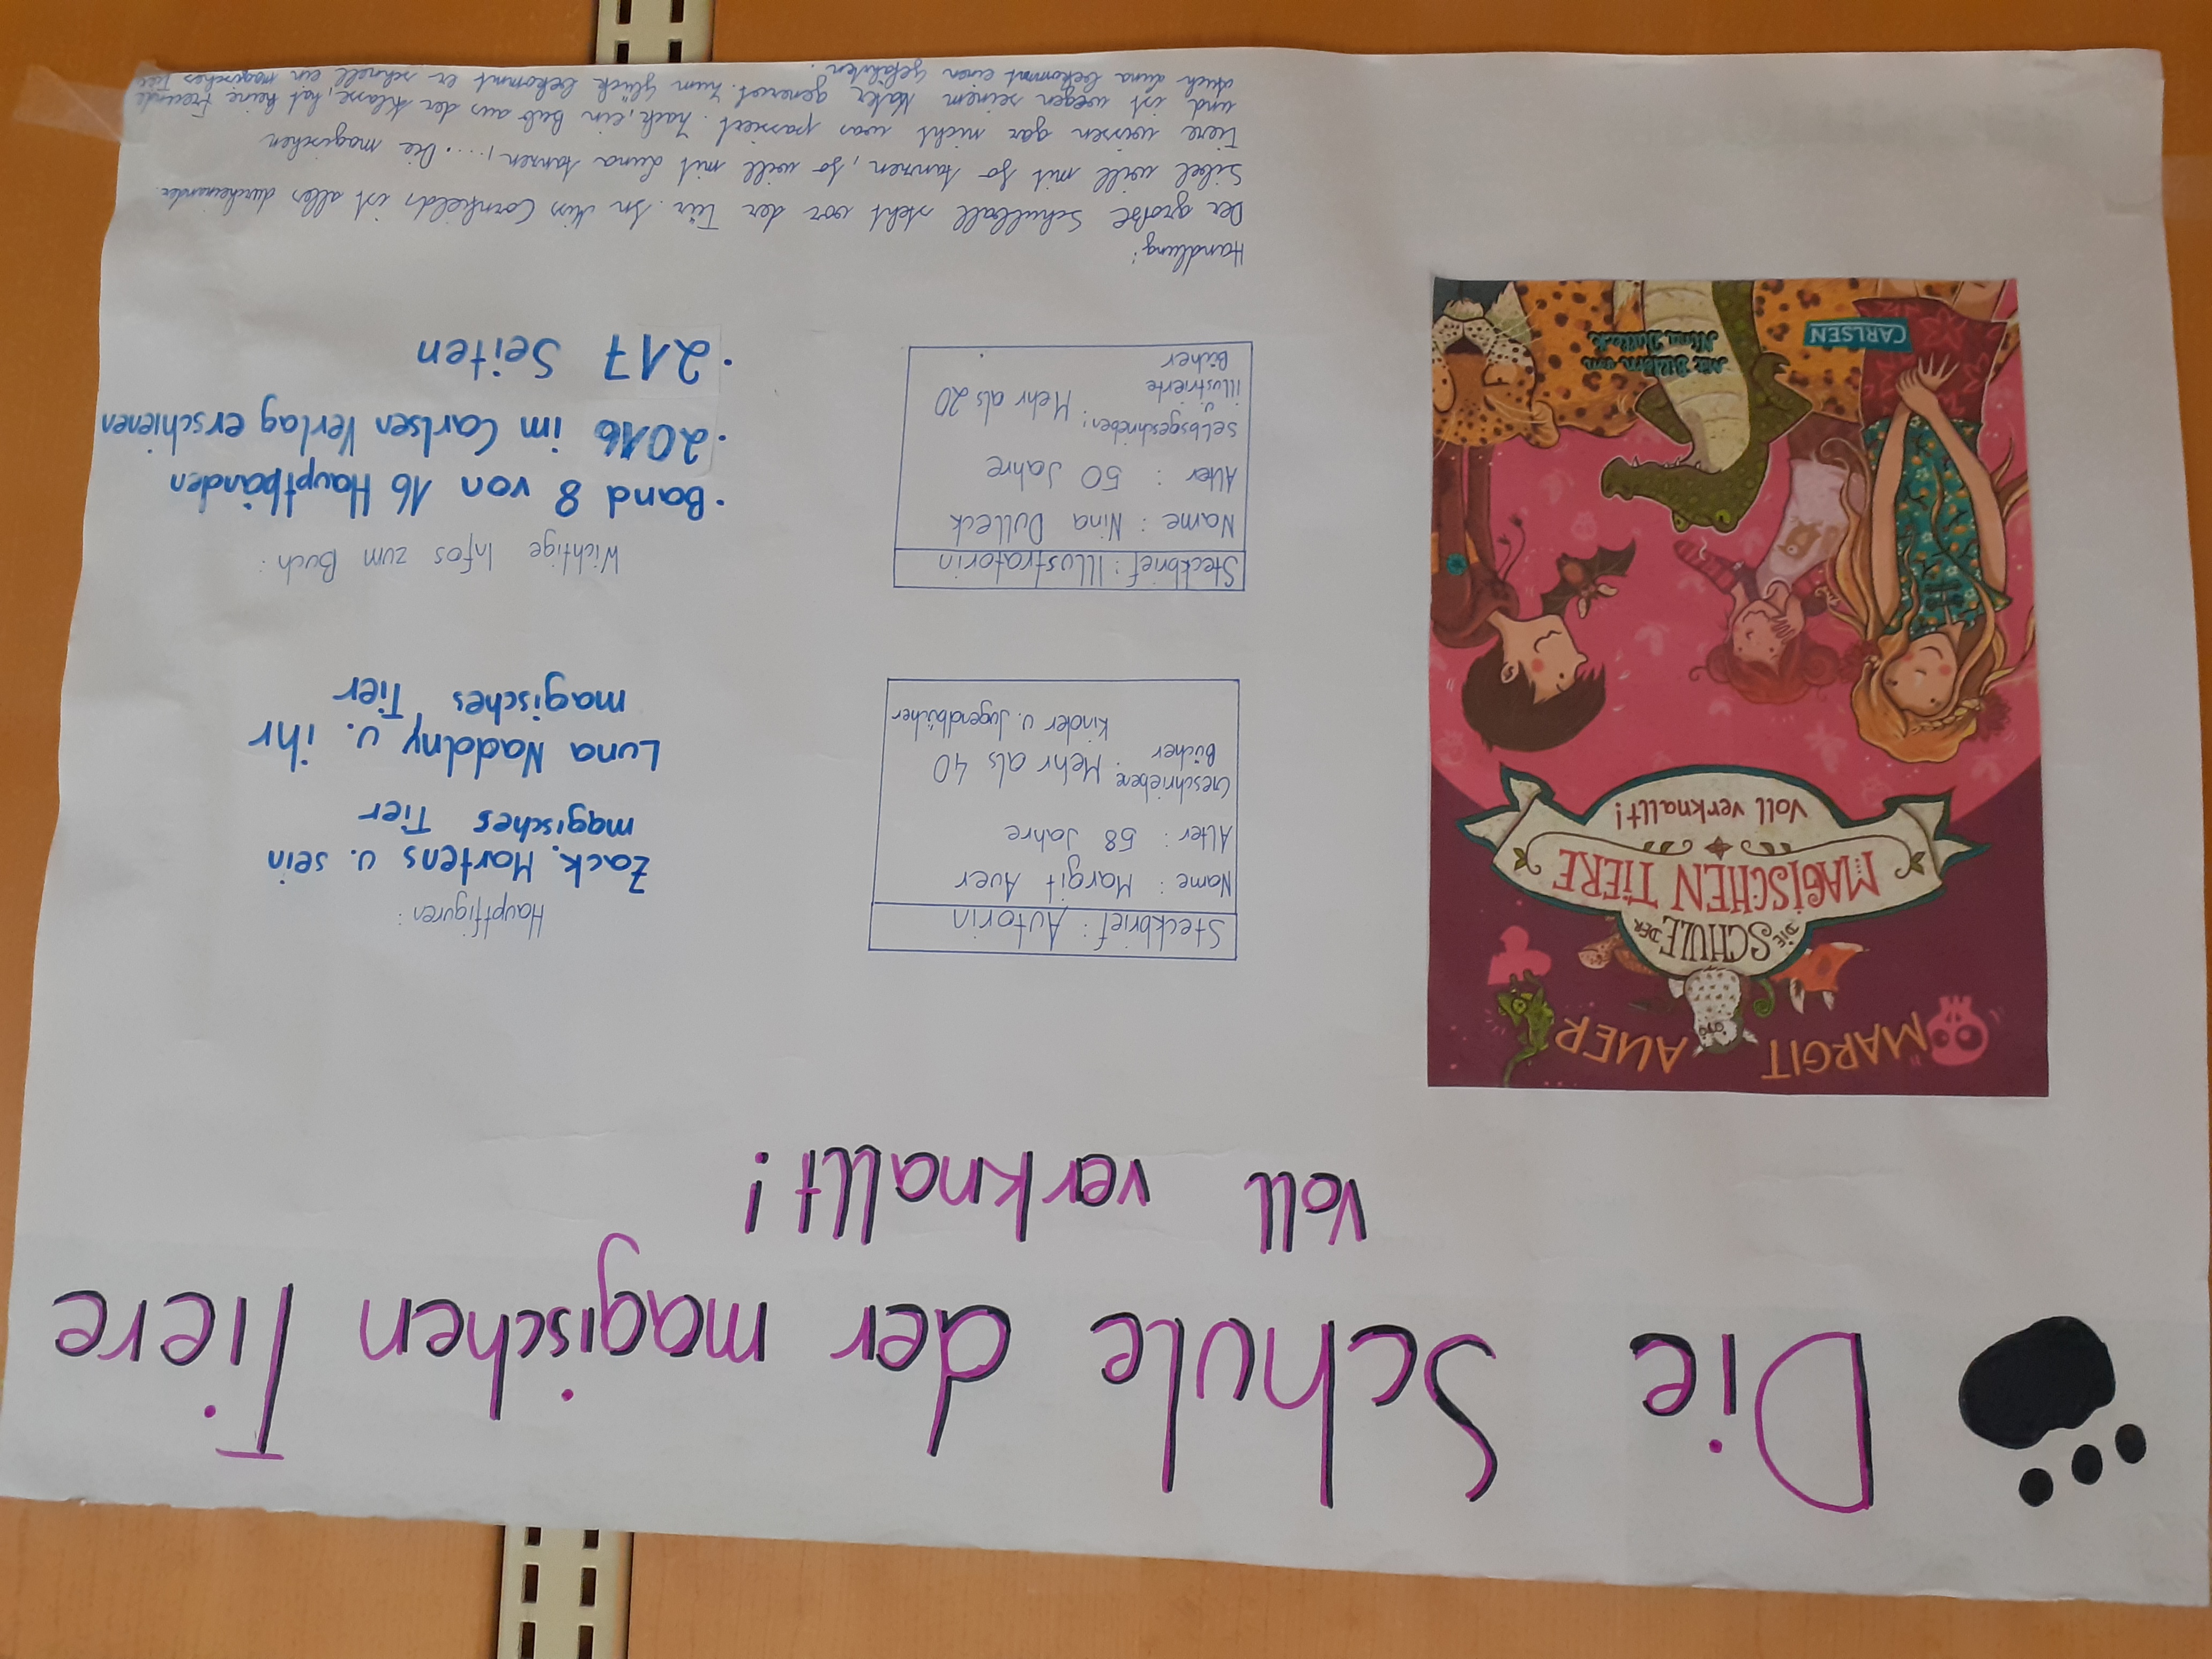 Die Schule der magischen Tiere
Voll verknallt!
MARGIT AUER
DIE SCHULE DER
MAGISCHEN TIERE
Voll verknallt!
Mit Bildern von
Nina Dulleck
CARLSEN
Steckbrief: Autorin
Name: Margit Auer
Alter: 58 Jahre
Geschriebene Bücher: Mehr als 40
Kinder u. Jugendbücher
Steckbrief: Illustratorin
Name: Nina Dulleck
Alter: 50 Jahre
selbsgeschrieben;
u. illustrierte Bücher Mehr als 20
Hauptfiguren:
Zack. Martens u. sein
magisches Tier
Luna Nadolny u. ihr
magisches Tier
Wichtige Infos zum Buch:
• Band 8 von 16 Hauptbänden
• 2016 im Carlsen Verlag erschienen
• 217 Seiten
Handlung:
Der große Schulball steht vor der Tür. In Miss Cornfields ist alles durcheinander.
Sibel will mit Jo tanzen, Jo will mit Luna tanzen,.... Die magischen
Tiere wissen gar nicht was passiert. Zack, ein Bub aus der Klasse, hat keine Freunde
und ist wegen seinem Vater genervt. Zum Glück bekommt er schnell ein magisches Tier
Auch Luna bekommt einen Gefährten.